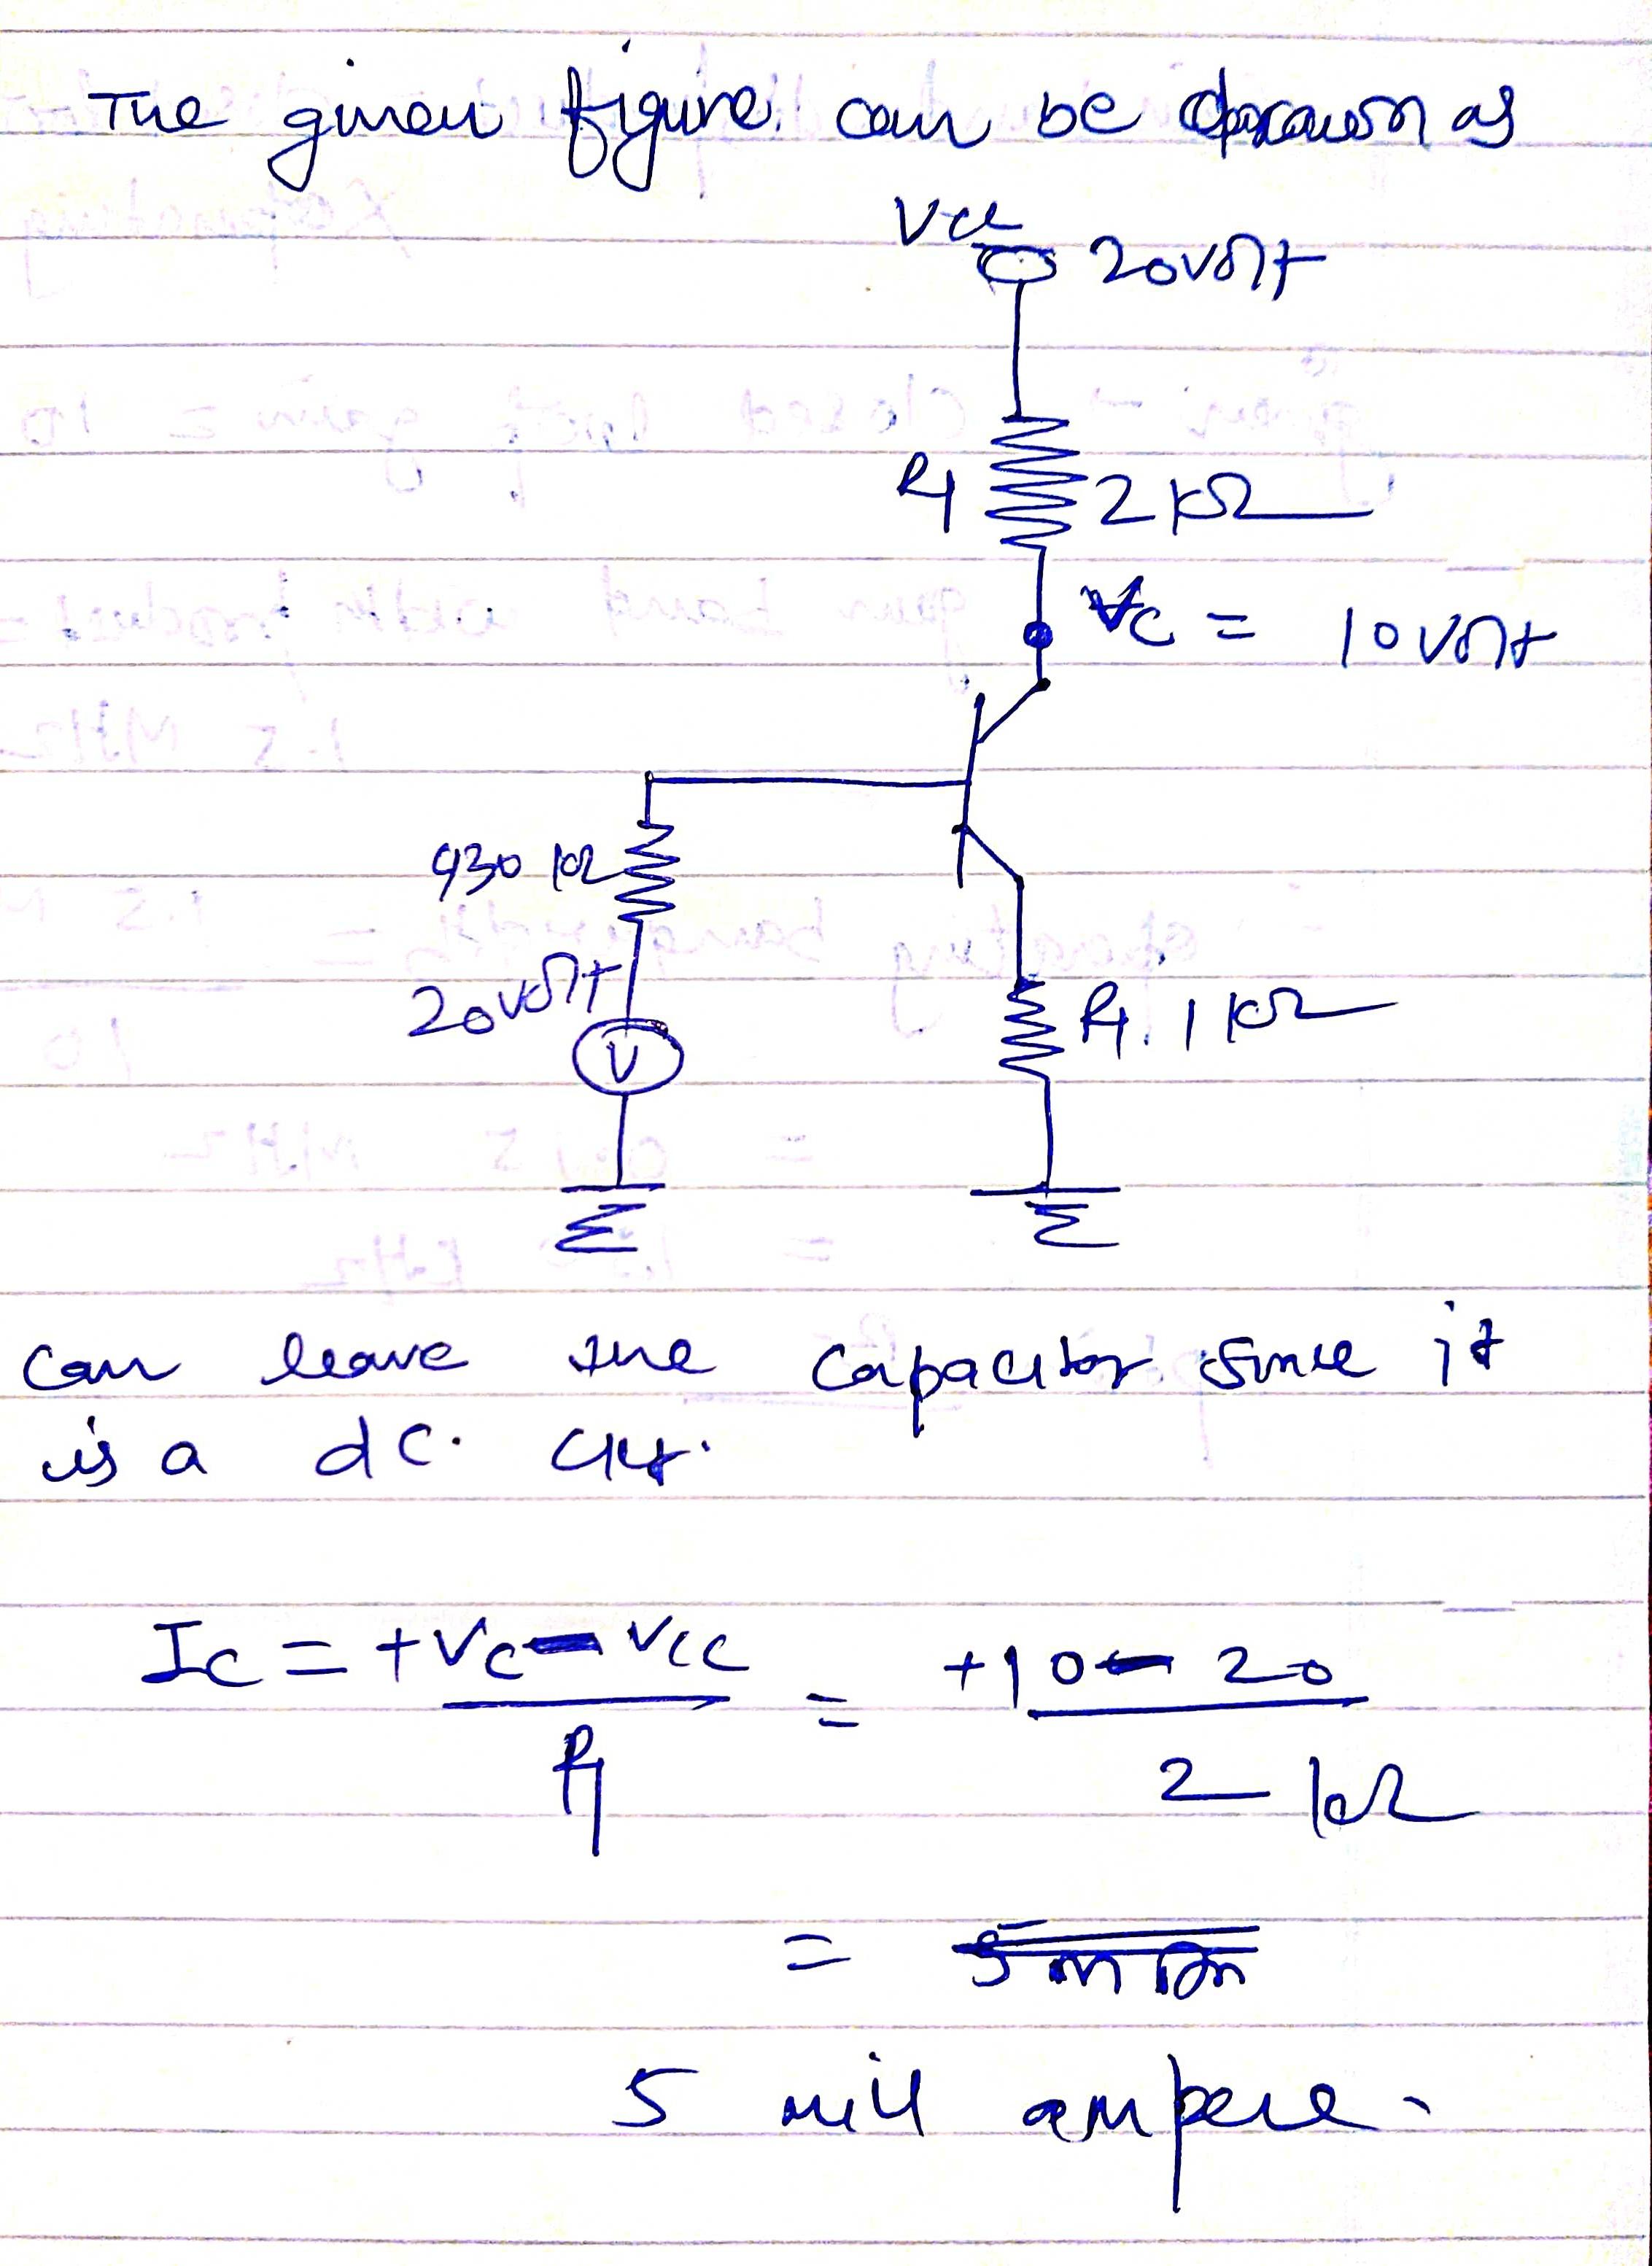 The given figure can be drawn as
Vcc 20 volt
R1 2 kΩ
Vc = 10 volt
430 kΩ
20 volt
V
R1. 1 kΩ
can leave the capacitor since it
is a dc. ckt.
Ic = +Vc - Vcc / R1 = +10 - 20 / 2 kΩ
=
5 mill ampere.